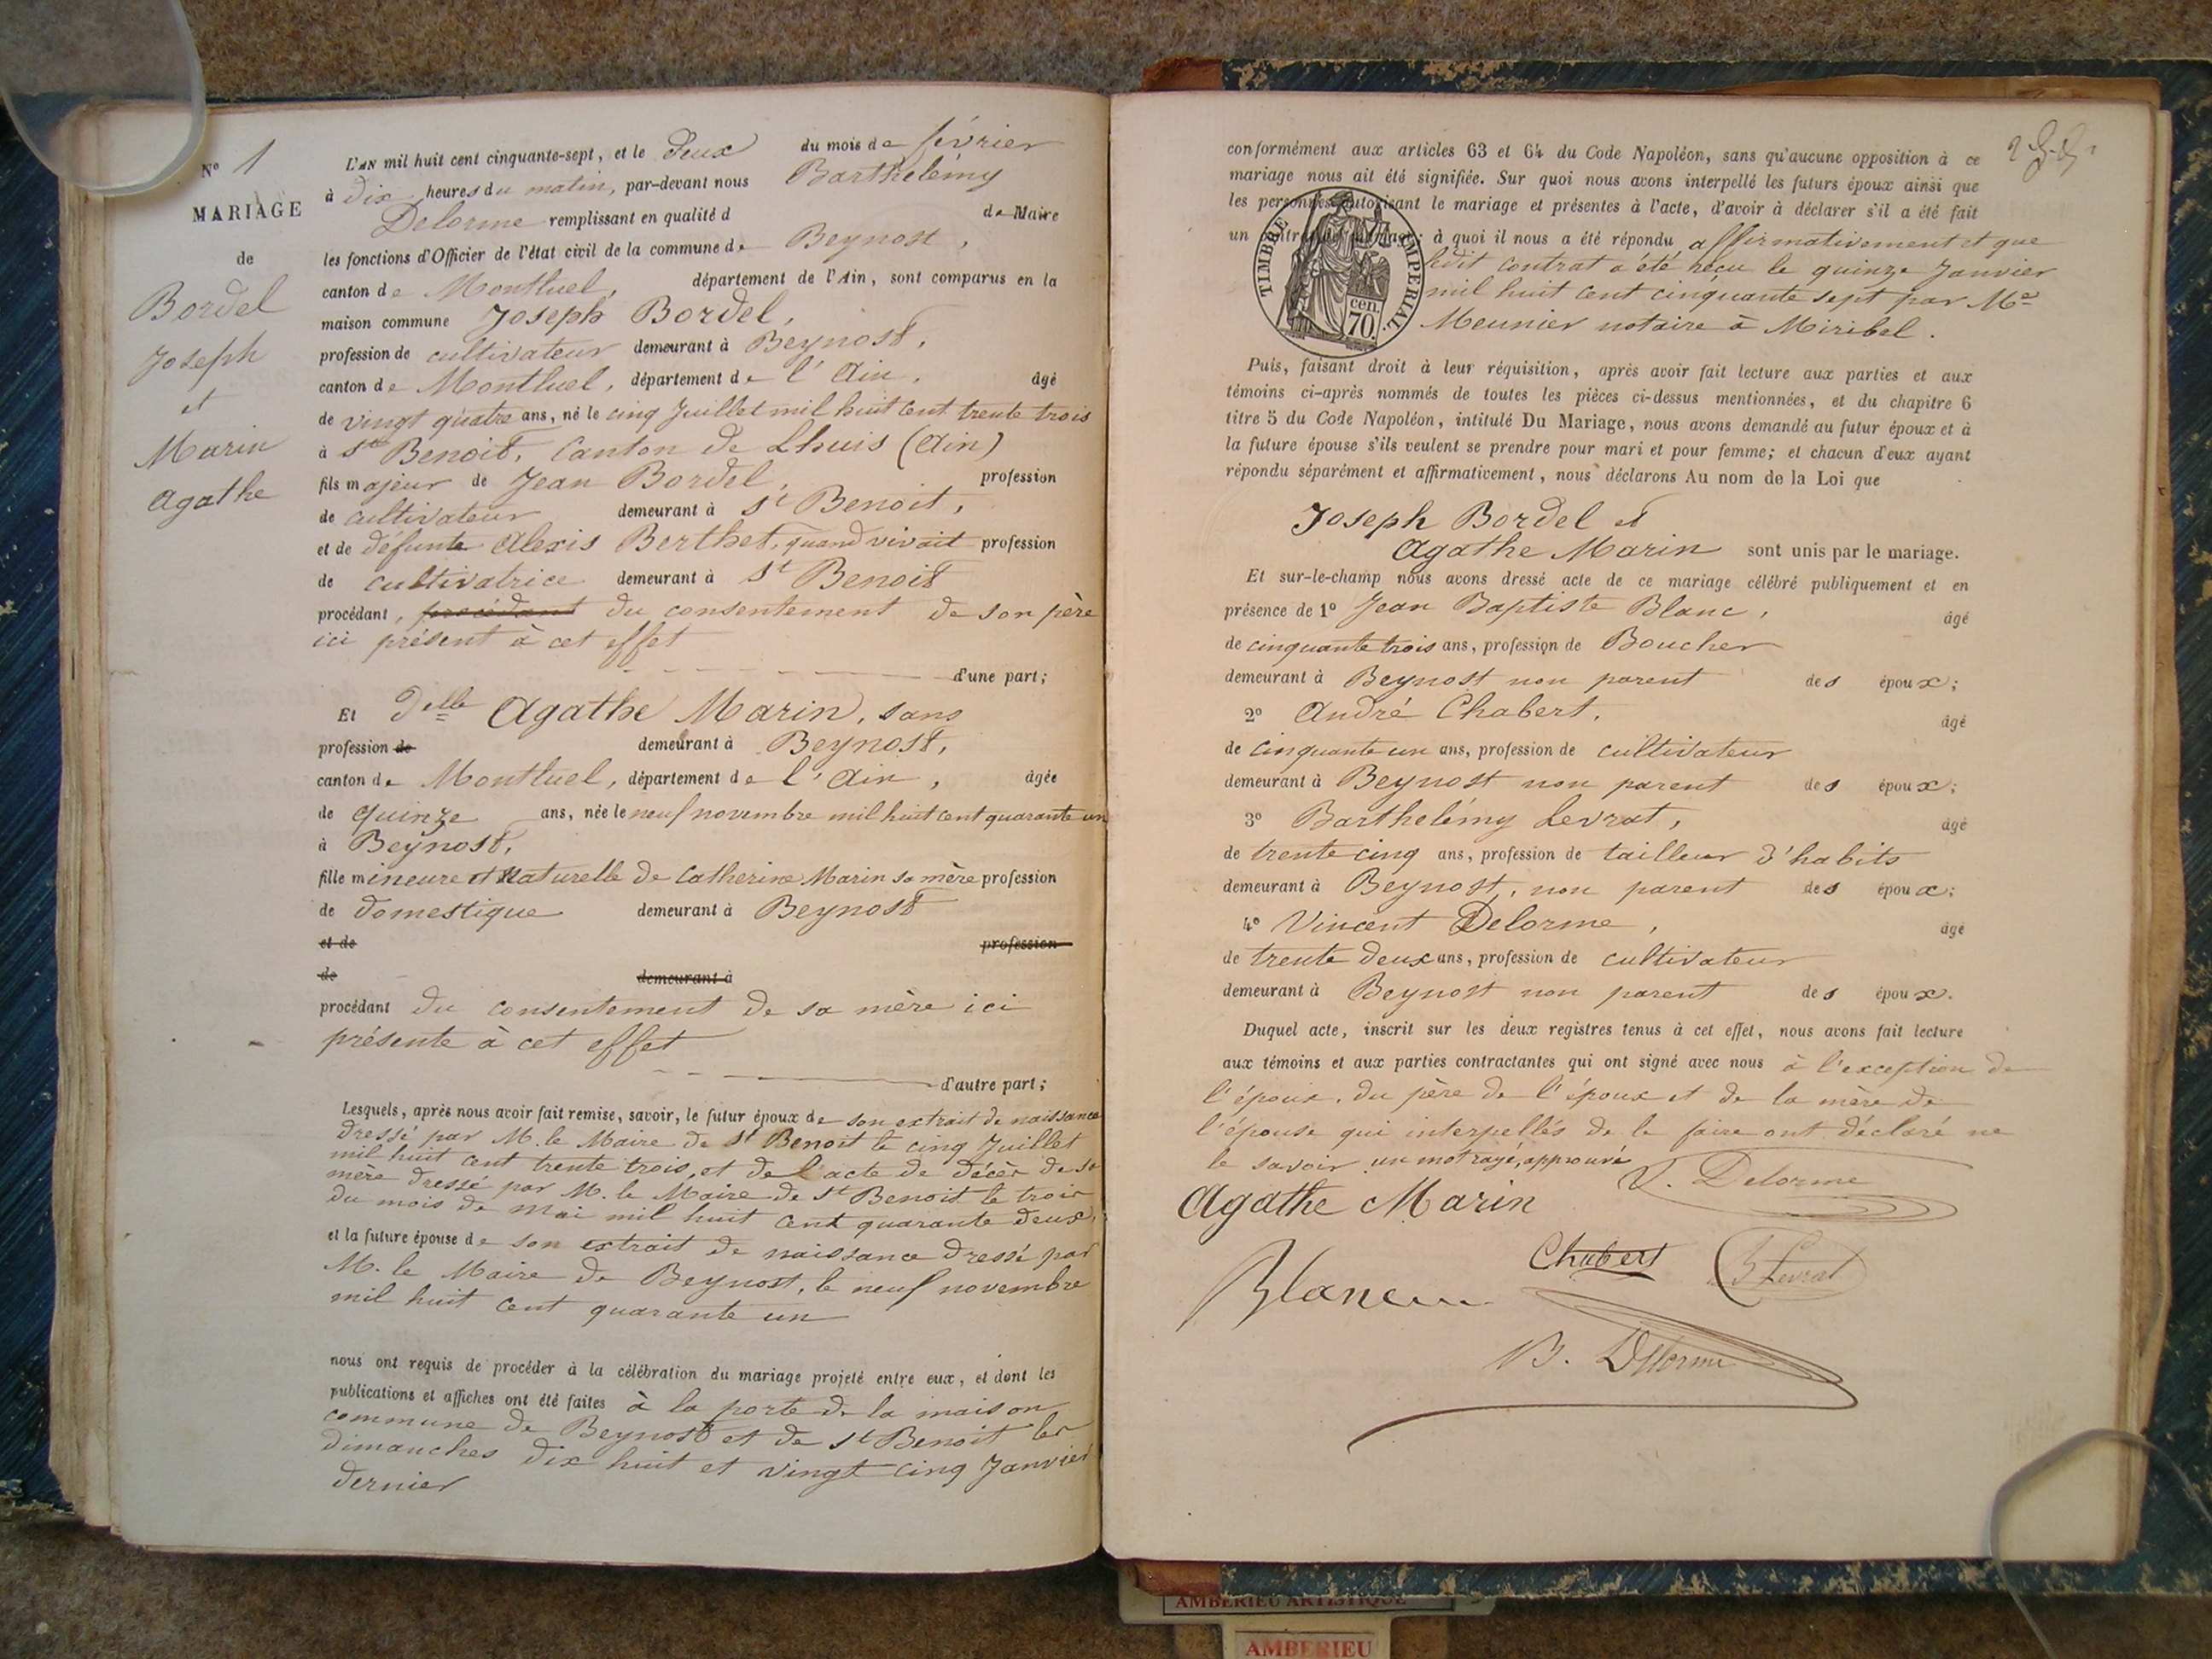 N° 1
MARIAGE
de
Bordel
Joseph
et
Marin
Agathe
L'AN mil huit cent cinquante-sept, et le deux du mois de février
à dix heures du matin, par-devant nous Barthelémy
Delorme remplissant en qualité d de Maire
les fonctions d'Officier de l'état civil de la commune de Beynost,
canton de Montluel, département de l'Ain, sont comparus en la
maison commune Joseph Bordel,
profession de cultivateur demeurant à Beynost,
canton de Montluel, département de l'Ain, âgé
de vingt quatre ans, né le cinq Juillet mil huit cent trente trois
à St Benoit, Canton de Lhuis (Ain)
fils majeur de Jean Bordel, profession
de cultivateur demeurant à St Benoit,
et de défunte Alexis Berthet, quand vivait profession
de cultivatrice demeurant à St Benoit
procédant, procédant du consentement de son père
ici présent à cet effet
d'une part;
Et Delle Agathe Marin, sans
profession de demeurant à Beynost,
canton de Montluel, département de l'Ain, âgée
de quinze ans, née le neuf novembre mil huit cent quarante un
à Beynost,
fille mineure et Naturelle de Catherine Marin sa mère profession
de domestique demeurant à Beynost
et de profession
de demeurant à
procédant du consentement de sa mère ici
présente à cet effet
d'autre part;
Lesquels, après nous avoir fait remise, savoir, le futur époux de son extrait de naissance
dressé par M. le Maire de St Benoit le cinq Juillet
mil huit cent trente trois, et de l'acte de décès de sa
mère dressé par M. le Maire de St Benoit le trois
du mois de Mai mil huit cent quarante deux,
et la future épouse de son extrait de naissance dressé par
M. le Maire de Beynost, le neuf novembre
mil huit cent quarante un
nous ont requis de procéder à la célébration du mariage projeté entre eux, et dont les
publications et affiches ont été faites à la porte de la maison
commune de Beynost et de St Benoit les
dimanches dix huit et vingt cinq Janvier
dernier
conformément aux articles 63 et 64 du Code Napoléon, sans qu'aucune opposition à ce
mariage nous ait été signifiée. Sur quoi nous avons interpellé les futurs époux ainsi que
les personnes autorisant le mariage et présentes à l'acte, d'avoir à déclarer s'il a été fait
un contrat de mariage; à quoi il nous a été répondu affirmativement et que
ledit contrat a été reçu le quinze Janvier
mil huit cent cinquante sept par Me
Meunier notaire à Miribel.
TIMBRE IMPERIAL
cen.
70.
Puis, faisant droit à leur réquisition, après avoir fait lecture aux parties et aux
témoins ci-après nommés de toutes les pièces ci-dessus mentionnées, et du chapitre 6
titre 5 du Code Napoléon, intitulé Du Mariage, nous avons demandé au futur époux et à
la future épouse s'ils veulent se prendre pour mari et pour femme; et chacun d'eux ayant
répondu séparément et affirmativement, nous déclarons Au nom de la Loi que
Joseph Bordel et
Agathe Marin sont unis par le mariage.
Et sur-le-champ nous avons dressé acte de ce mariage célébré publiquement et en
présence de 1° Jean Baptiste Blanc, âgé
de cinquante trois ans, profession de Boucher
demeurant à Beynost non parent des époux;
2° André Chabert, âgé
de cinquante un ans, profession de cultivateur
demeurant à Beynost non parent des époux;
3° Barthelémy Levrat, âgé
de trente cinq ans, profession de tailleur d'habits
demeurant à Beynost, non parent des époux;
4° Vincent Delorme, âgé
de trente deux ans, profession de cultivateur
demeurant à Beynost non parent des époux.
Duquel acte, inscrit sur les deux registres tenus à cet effet, nous avons fait lecture
aux témoins et aux parties contractantes qui ont signé avec nous à l'exception de
l'époux, du père de l'époux et de la mère de
l'épouse qui interpellés de le faire ont déclaré ne
le savoir un mot rayé, approuvé
Agathe Marin V. Delorme
Blanc Chabert B Levrat
B. Delorme
AMBERIEU ARTISTIQUE
AMBERIEU